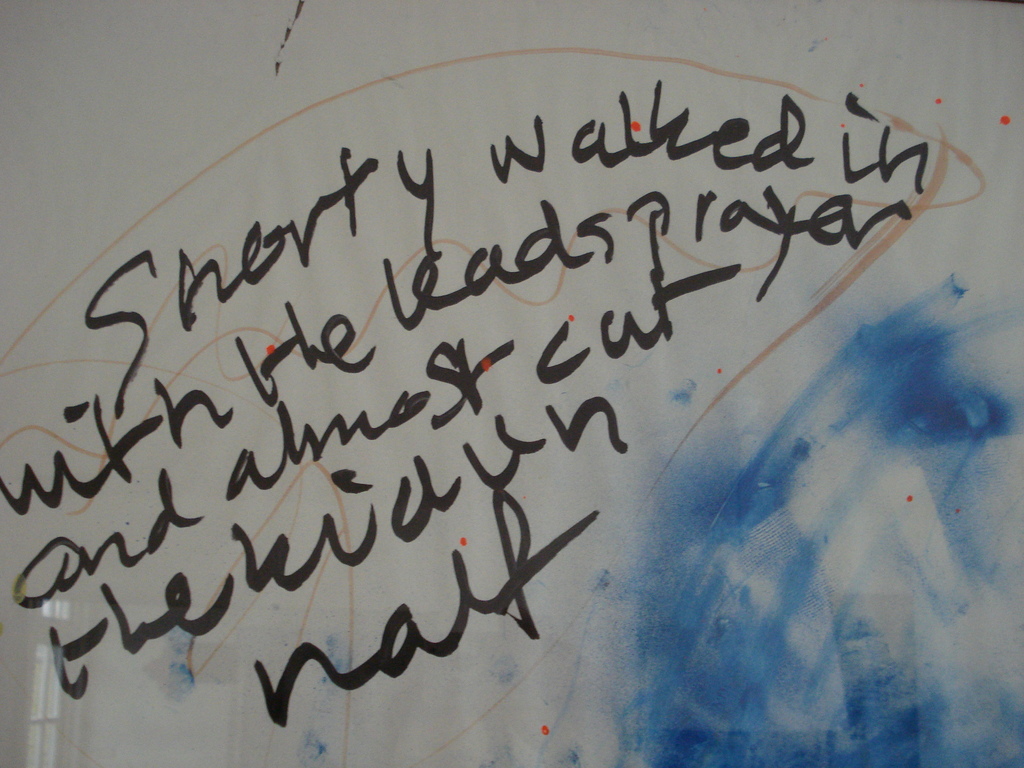 Shorty walked in
with the leadsprayer
and almost cut
the kid in
half